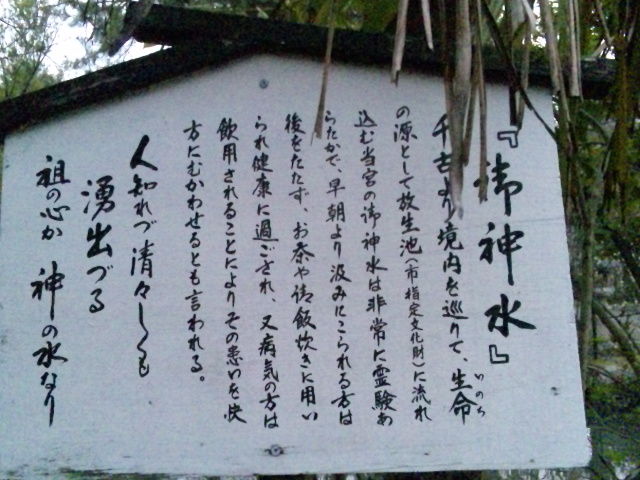 『御神水』
千古より境内を巡りて、生命
いのち
の源として放生池(市指定文化財)に流れ
込む当宮の御神水は非常に霊験あ
らたかで、早朝より汲みにこられる方は
後をたたず、お茶や御飯炊きに用い
られ健康に過ごされ、又病気の方は
飲用されることによりその患いを快
方にむかわせるとも言われる。
人知れづ清々しくも
湧出づる
祖の心か 神の水なり